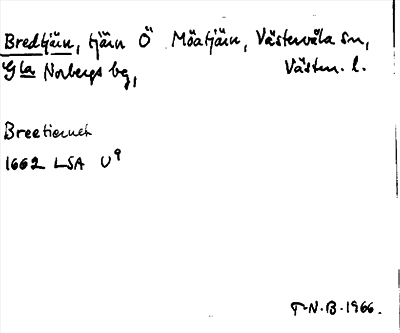 Bredtjärn, tjärn Ö Möatjärn, Västervåla sn,
Gla Norbergs bg, Västm. l.
Breetiernet
1662 LSA U9
T-N.B. 1966.